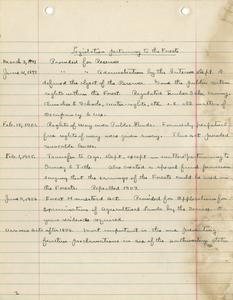 Legislation pertaining to the Forests
March 3, 1891 Provided for Reserves
June 4, 1897 " " Administration by the Interior Dept. &
defined the object of the Reserves. Made the public
rights within the Forest. Regulated Timber Sales, mining,
Churches & Schools, water rights, etc. i.e. all matters of
Occupancy & Use.
Feb. 15, 1901. Rights of Way over Public Lands. Formerly perpetual &
free rights of way were given away. This act provided
revocable
Feb. 1, 1905. Transfer to Agr. Dept. except in matters pertaining to
Survey & Title. Also created a special fund provision
saying that the earnings of the Forests could be used on
the Forests. Repealed 1907.
June 11, 1906 Forest Homestead Act. Provided for Application for
Examination of Agricultural Lands by the Service. 5
years residence required.
Various Acts after 1906. Most important is the one preventing
further proclamations in six of the northwestern states